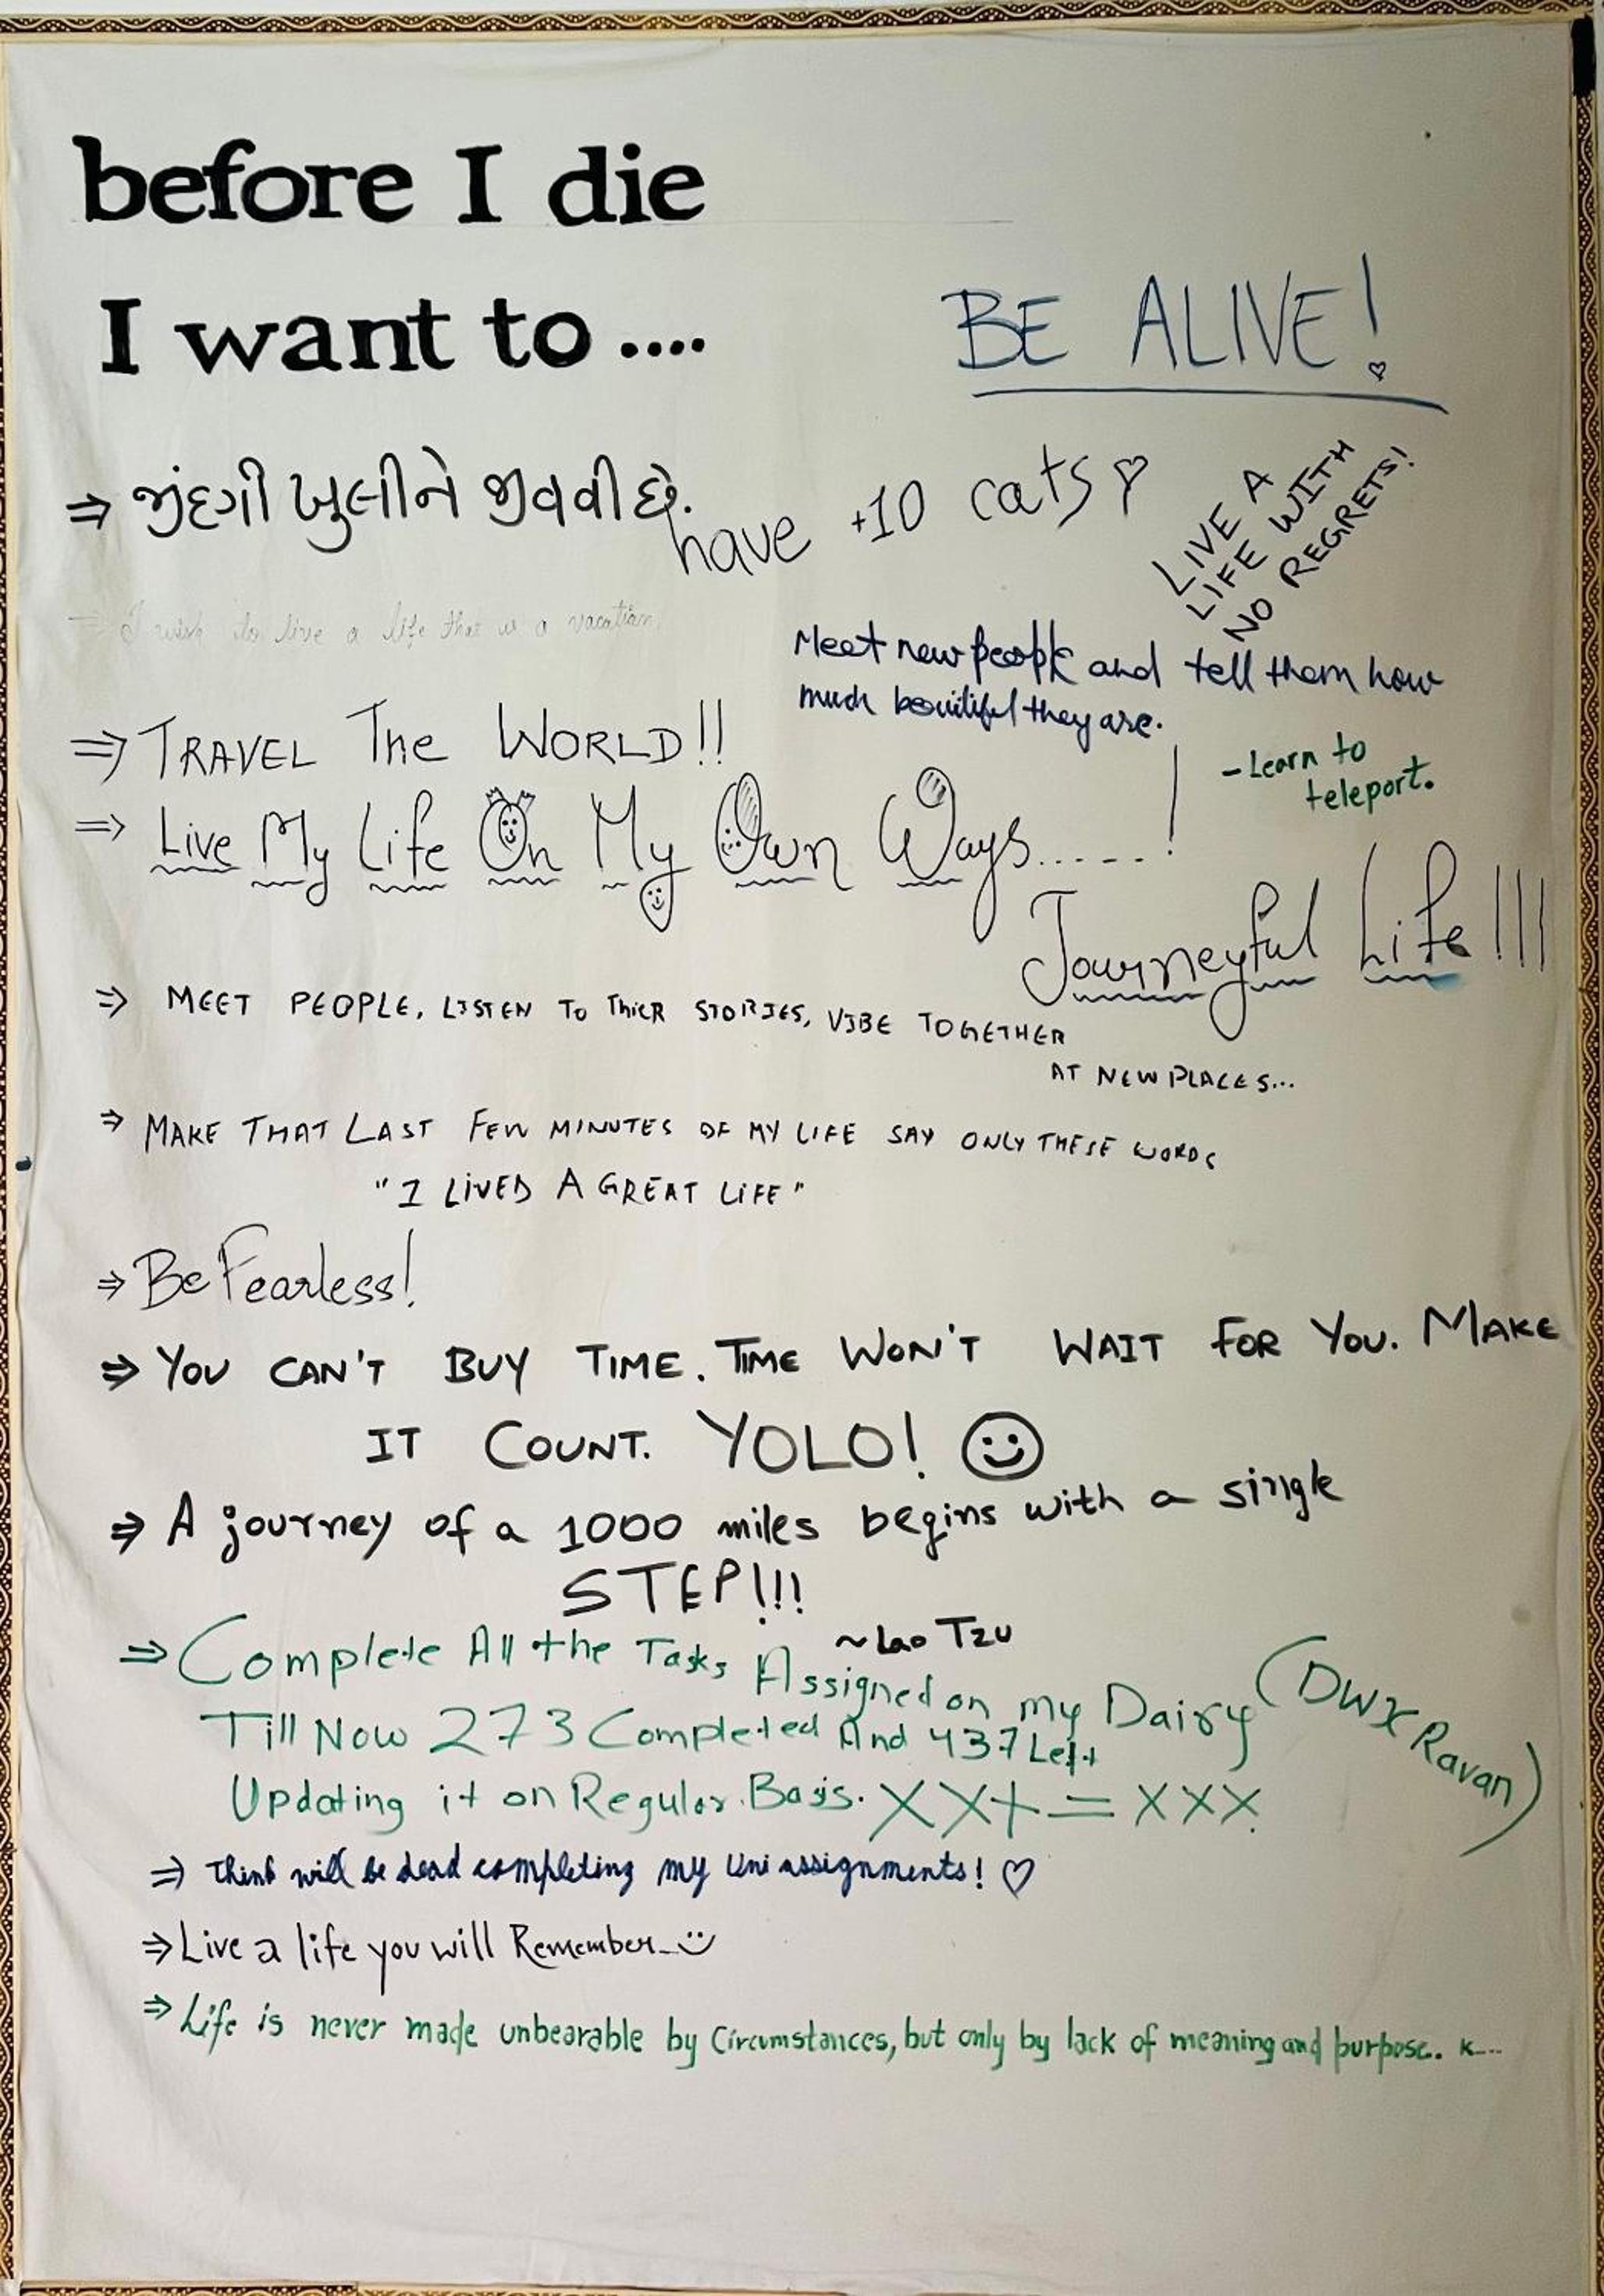 before I die
I want to ....
BE ALIVE!
⇒ જીંદગી ખુલીને જીવવી છે.
have +10 cats
LIVE A
LIFE WITH
NO REGRETS!
⇒ I wish to live a life that is a vacation
Meet new people and tell them how
much they are.
⇒ TRAVEL The WORLD!!
- Learn to
teleport.
⇒ Live My Life On My Own Ways......!
Journeyful Life!!!
⇒ MEET PEOPLE, LISTEN TO THIER STORIES, VIBE TOGETHER
AT NEW PLACES...
⇒ MAKE THAT LAST FEW MINUTES OF MY LIFE SAY ONLY THESE WORDS
"I LIVED A GREAT LIFE"
⇒ Be Fearless!
⇒ YOU CAN'T BUY TIME. TIME WON'T WAIT FOR YOU. MAKE
IT COUNT. YOLO! ☺
⇒ A journey of a 1000 miles begins with a single
STEP!!!
~ Lao Tzu
⇒ Complete All the Tasks Assigned on my Dairy (DWX Ravan)
Till Now 273 Completed And 437 Left
Updating it on Regular Basis. XXX = XXX
⇒ Think will be dead completing my Uni assignments! ♡
⇒ Live a life you will Remember ☺
⇒ Life is never made unbearable by Circumstances, but only by lack of meaning and purpose. K...